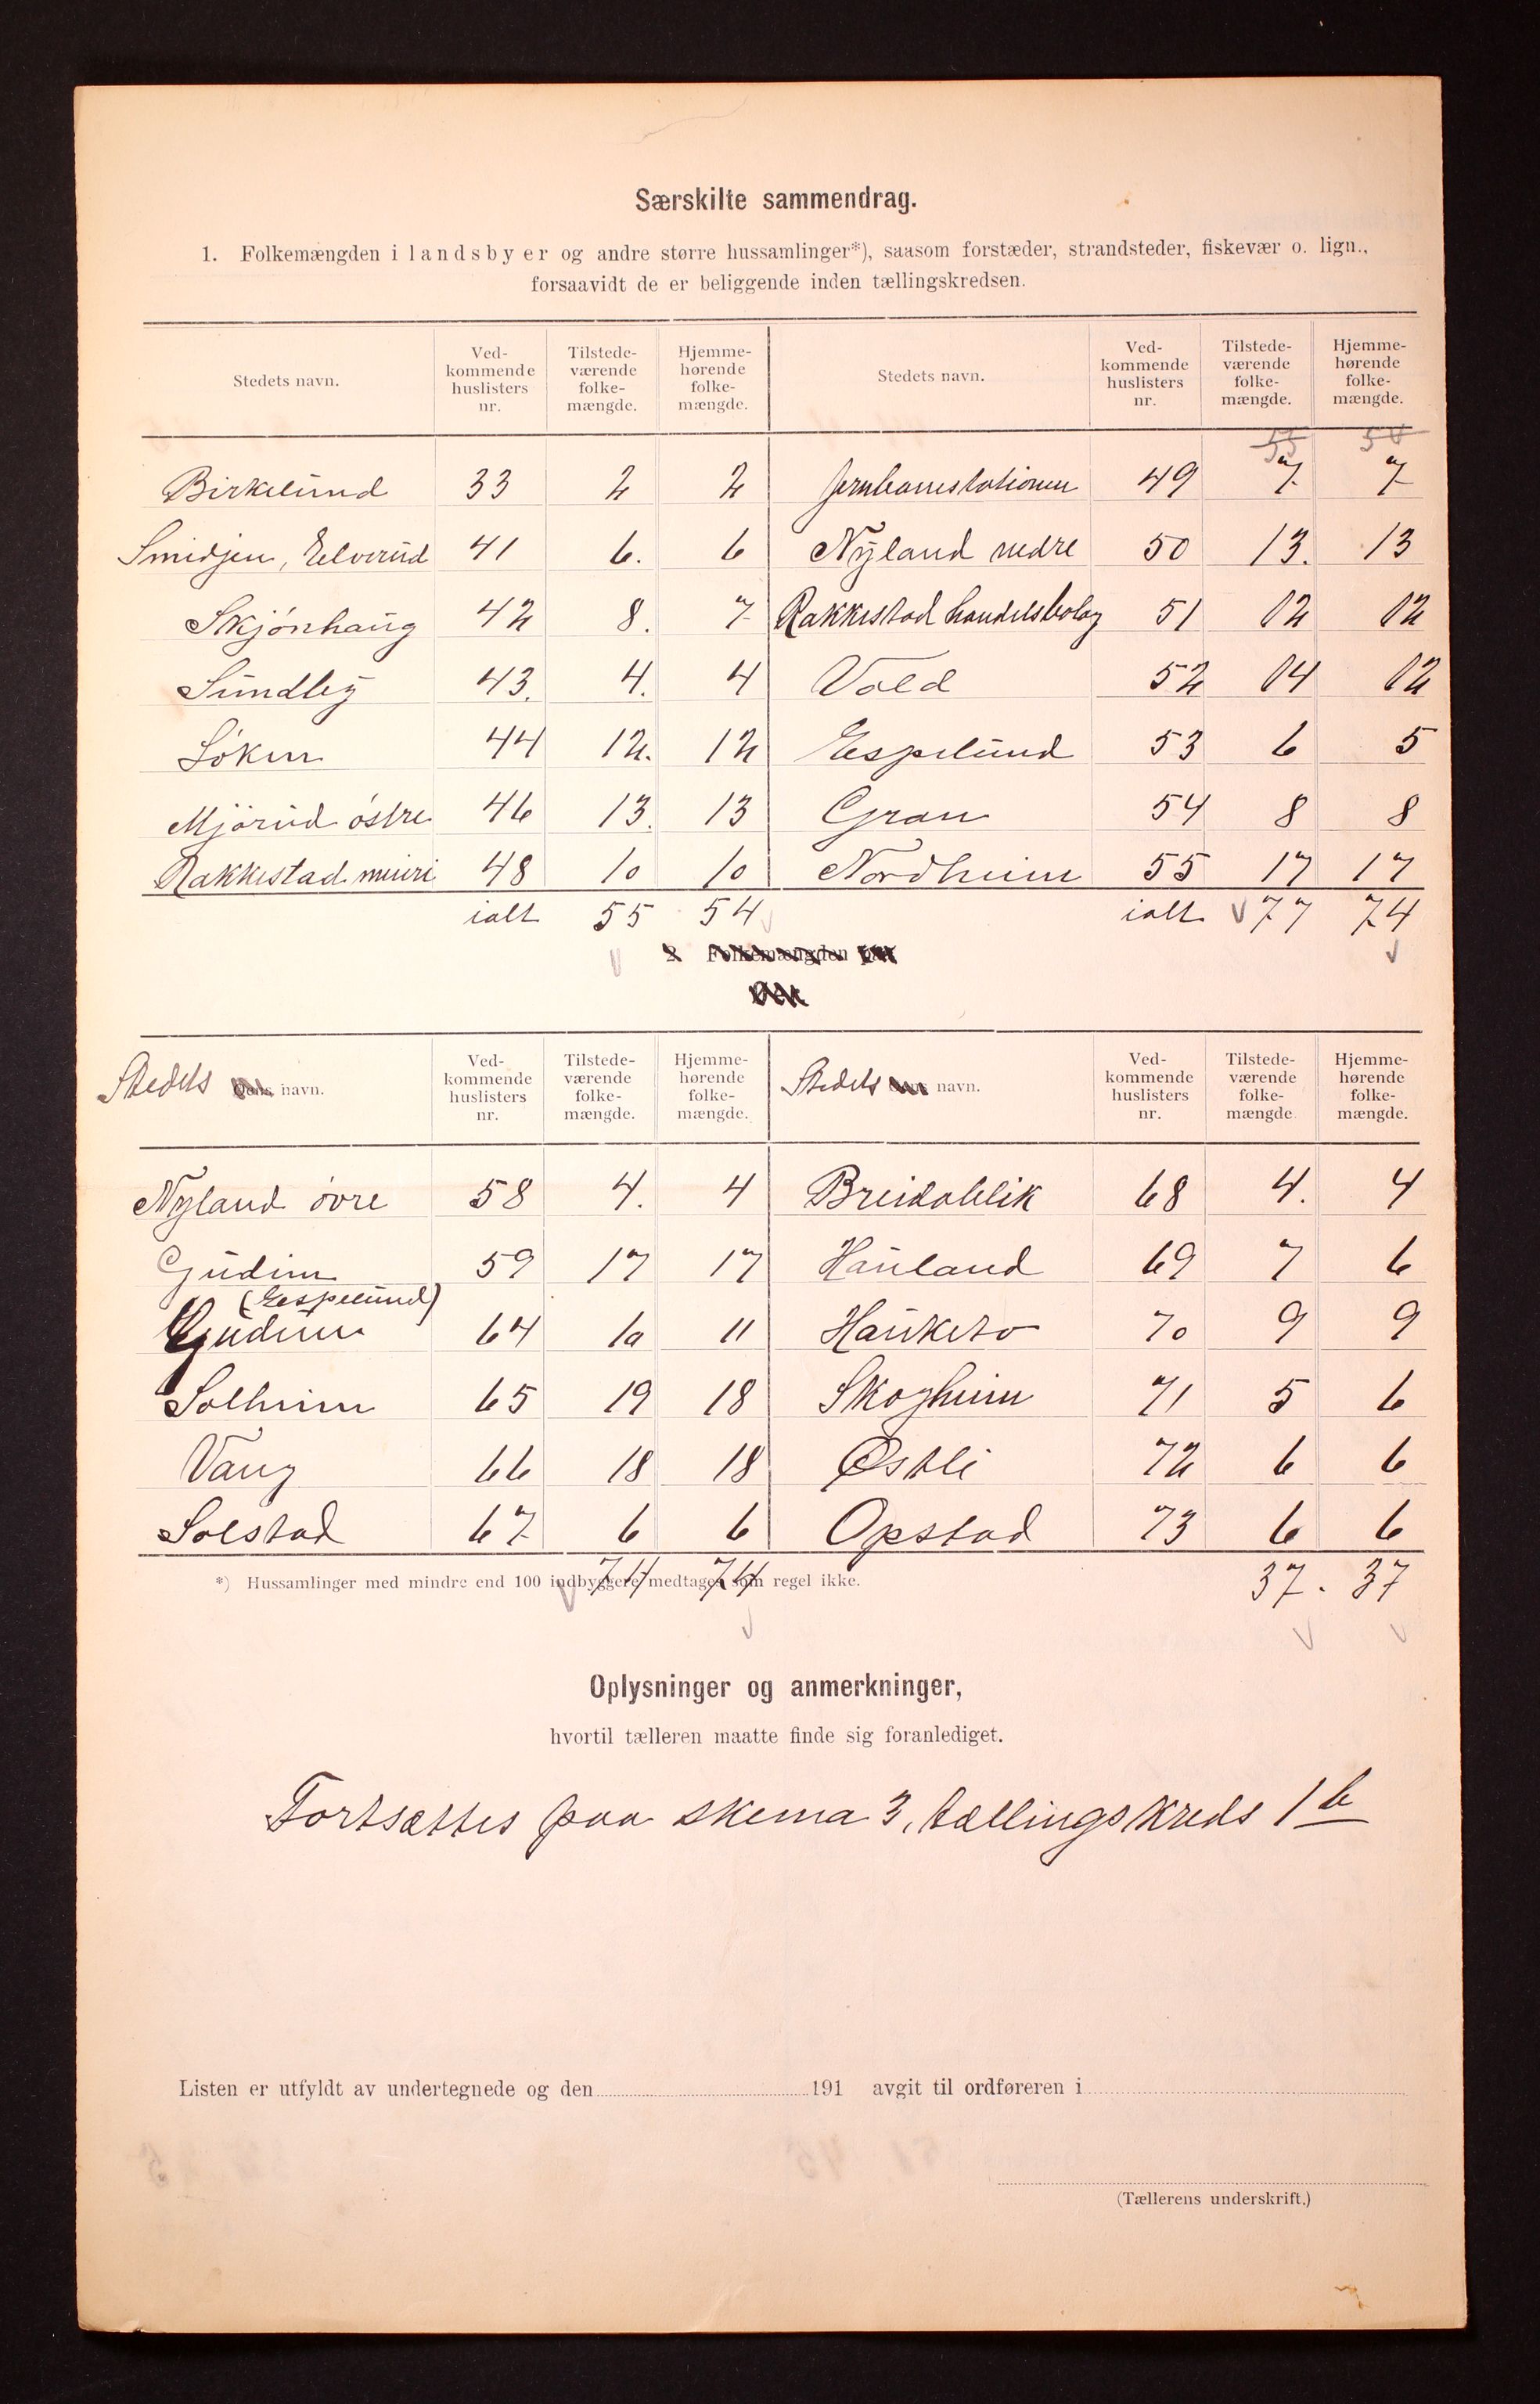 Særskilte sammendrag.
1. Folkemængden i landsbyer og andre større hussamlinger*), saasom forstæder, strandsteder, fiskevær o. lign.,
forsaavidt de er beliggende inden tællingskredsen.
Stedets navn. Ved-kommende huslisters nr. Tilstede-værende folke-mængde. Hjemme-hørende folke-mængde. Stedets navn. Ved-kommende huslisters nr. Tilstede-værende folke-mængde. Hjemme-hørende folke-mængde.
55 54
Birkelund 33 2 2 Jernbanestationen 49 7 7
Smidjen, Elverud 41 6. 6 Nyland nedre 50 13. 13
Skjönhaug 42 8. 7 Rakkestad handelsbolag 51 12 12
Sundby 43. 4. 4 Vold 52 14 12
Löken 44 12. 12 Espelund 53 6 5
Mjörud östre 46 13. 13 Gran 54 8 8
Rakkestad meieri 48 10 10 Nordheim 55 17 17
ialt 55 54 ialt 77 74
2. Folkemængden paa
Stedets navn. Ved-kommende huslisters nr. Tilstede-værende folke-mængde. Hjemme-hørende folke-mængde. Stedets navn. Ved-kommende huslisters nr. Tilstede-værende folke-mængde Hjemme-hørende folke-mængde.
Nyland övre 58 4. 4 Breidablik 68 4. 4
Gudim 59 17 17 Hauland 69 7 6
(Espelund)
Gudim 64 10 11 Hauketo 70 9 9
Solheim 65 19 18 Skogheim 71 5 6
Vang 66 18 18 Østli 72 6 6
Solstad 67 6 6 Opstad 73 6 6
*) Hussamlinger med mindre end 100 indbyggere medtages som regel ikke.
74 74 37. 37
Oplysninger og anmerkninger,
hvortil tælleren maatte finde sig foranlediget.
Fortsættes paa skema 3, tællingskreds 1b
Listen er utfyldt av undertegnede og den 191 avgit til ordføreren i
(Tællerens underskrift.)